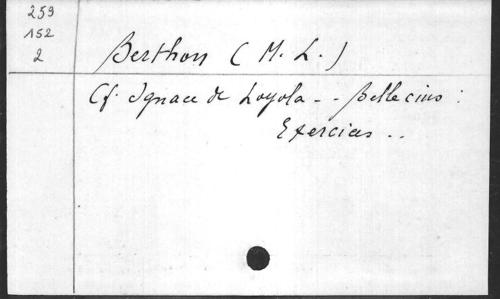 259
152
2
Berthon (M. L.)
Cf. Ignace de Loyola -- Bellecius :
Exercices ..